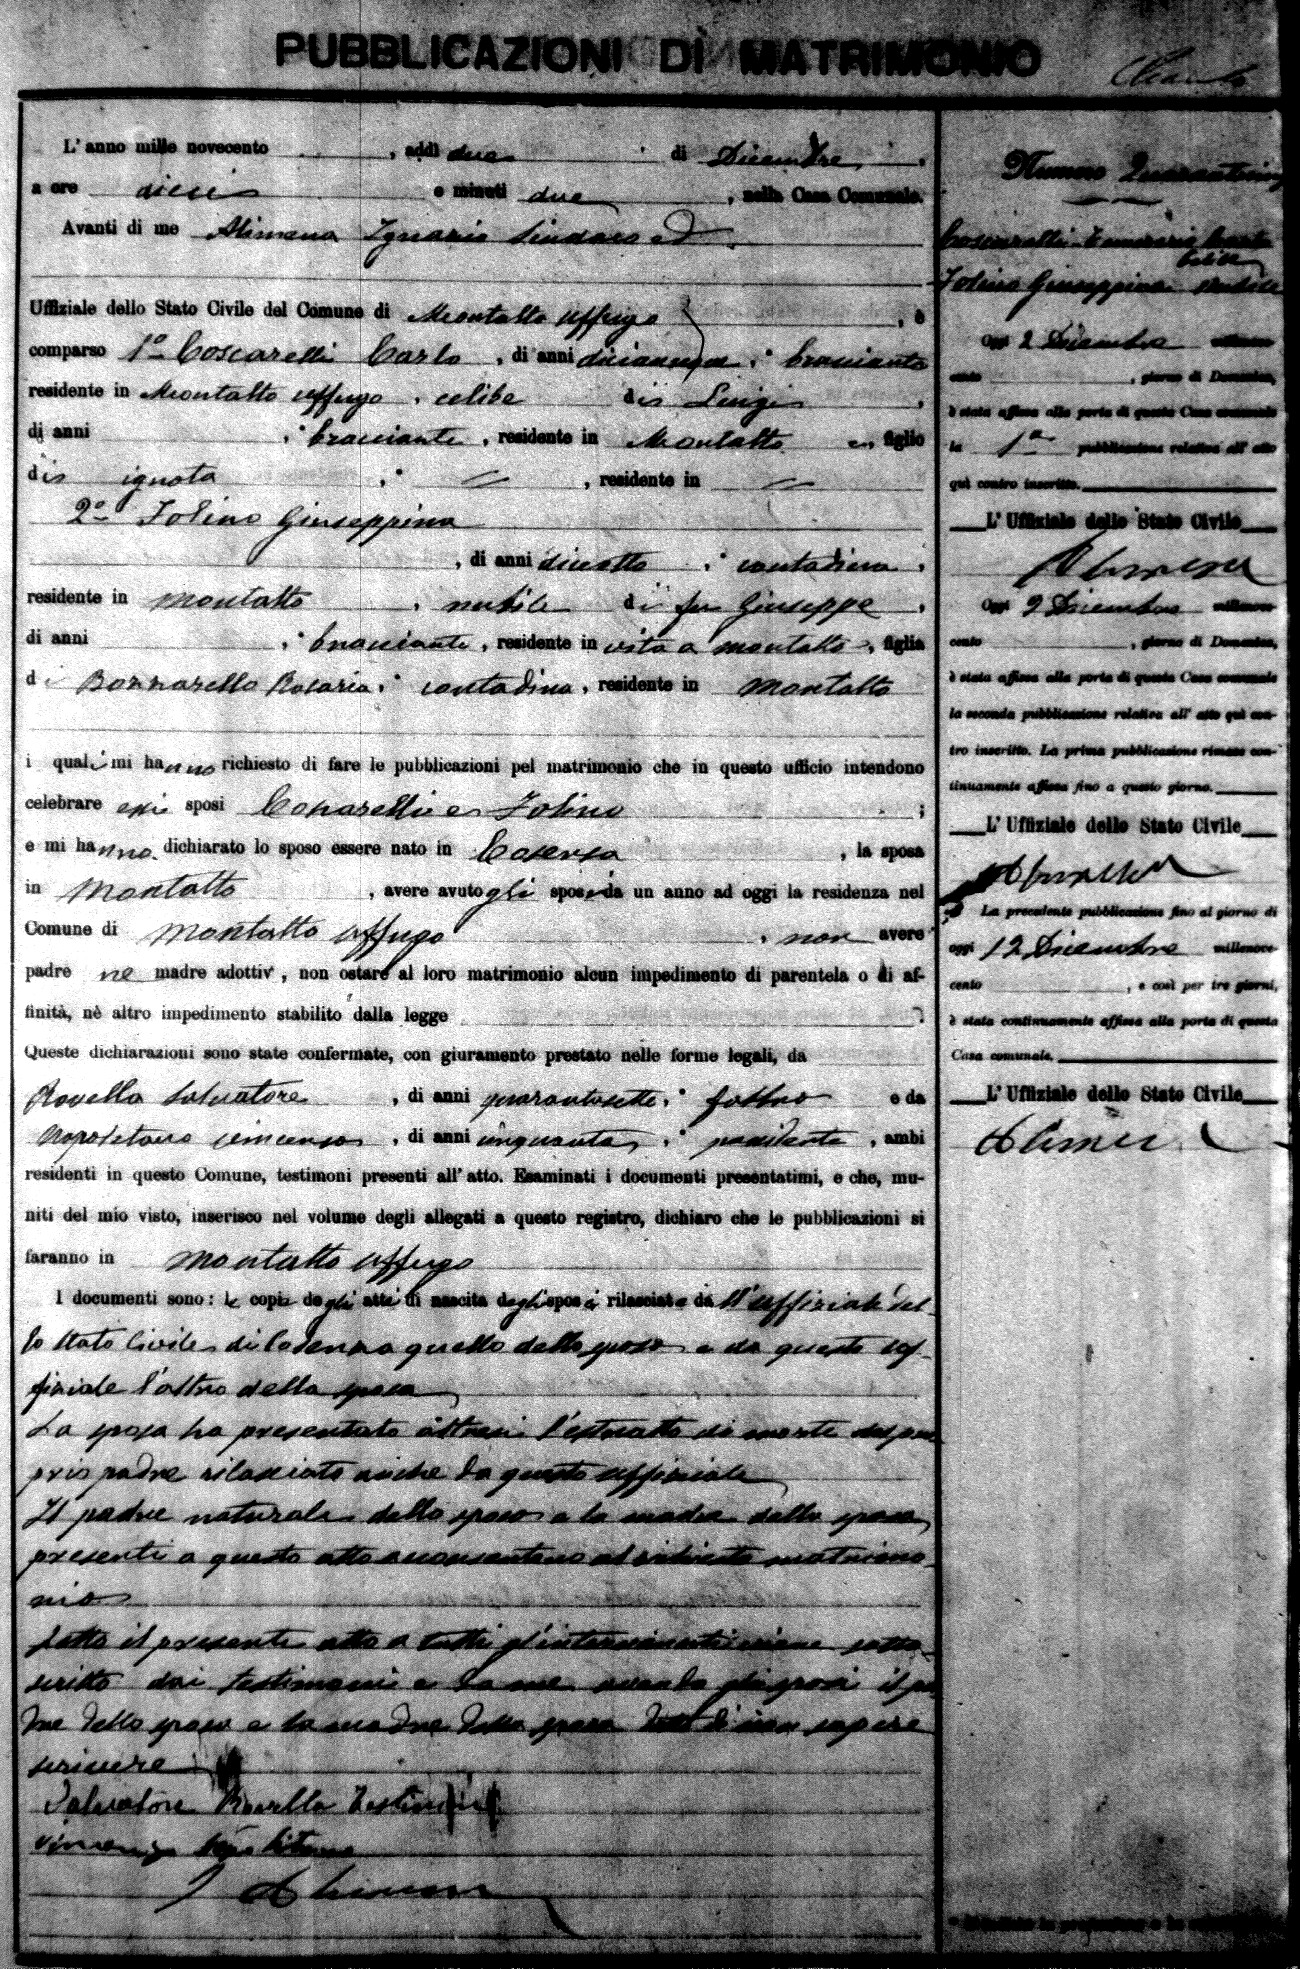 PUBBLICAZIONI DI MATRIMONIO
L'anno mille novecento , addì due di Dicembre ,
a ore dieci e minuti due , nella Casa Comunale.
Avanti di me Alimena Ignazio Sindaco ed
Uffiziale dello Stato Civile del Comune di Montalto Uffugo , è
comparso 1° Coscarelli Carlo , di anni diciannove , bracciante
residente in Montalto Uffugo , celibe di Luigi ,
di anni , bracciante , residente in Montalto e, figlio
di ignota , = , residente in =
2° Tolino Giuseppina
, di anni diciotto , contadina ,
residente in Montalto , nubile di fu Giuseppe ,
di anni , bracciante , residente in vita a Montalto , figlia
di Bonnarello Rosaria , contadina , residente in Montalto
i quali mi hanno richiesto di fare le pubblicazioni pel matrimonio che in questo ufficio intendono
celebrare essi sposi Coscarelli e Tolino ;
e mi hanno dichiarato lo sposo essere nato in Cosenza , la sposa
in Montalto , avere avuto gli sposi da un anno ad oggi la residenza nel
Comune di Montalto Uffugo , non avere
padre ne madre adottiv , non ostare al loro matrimonio alcun impedimento di parentela o di af-
finità, nè altro impedimento stabilito dalla legge .
Queste dichiarazioni sono state confermate, con giuramento prestato nelle forme legali, da
Rovella Salvatore , di anni quarantasette , fabbro e da
Napoletano Vincenzo , di anni cinquanta , possidente , ambi
residenti in questo Comune, testimoni presenti all' atto. Esaminati i documenti presentatimi, e che, mu-
niti del mio visto, inserisco nel volume degli allegati a questo registro, dichiaro che le pubblicazioni si
faranno in Montalto Uffugo
I documenti sono: le copie degli atti di nascita degli sposi rilasciate da ll'uffiziale del
lo Stato Civile di Cosenza quello dello sposo e da questo uf-
fiziale l'altro della sposa
La sposa ha presentato altresì l'estratto di morte del pro
prio padre rilasciato anche da questo uffiziale
Il padre naturale dello sposo e la madre della sposa
presenti a questo atto acconsentono al richiesto matrimo-
nio
Letto il presente atto a tutti gl'intervenuti viene sotto-
scritto dai testimoni e da me avendo gli sposi il pa
dre dello sposo e la madre della sposa detto di non sapere
scrivere
Salvatore Rovella Testimoni
Vincenzo Napolitano
I Alimena
Numero Quarantacinq
Coscarelli Carlo
Celibe
Tolino Giuseppina Nubile
Oggi 2 Dicembre millenove-
cento , giorno di Domenica,
è stata affissa alla porta di questa Casa comunale
la 1a pubblicazione relativa all' atto
quì contro inscritto.
L' Uffiziale dello Stato Civile
Alimena
Oggi 9 Dicembre millenove-
cento , giorno di Domenica,
è stata affissa alla porta di questa Casa comunale
la seconda pubblicazione relativa all' atto quì con-
tro inscritto. La prima pubblicazione rimase con-
tinuamente affissa fino a questo giorno.
L' Uffiziale dello Stato Civile
Alimena
La precedente pubblicazione fino al giorno di
oggi 12 Dicembre millenove-
cento , e così per tre giorni,
è stata continuamente affissa alla porta di questa
Casa comunale.
L' Uffiziale dello Stato Civile
Alimena